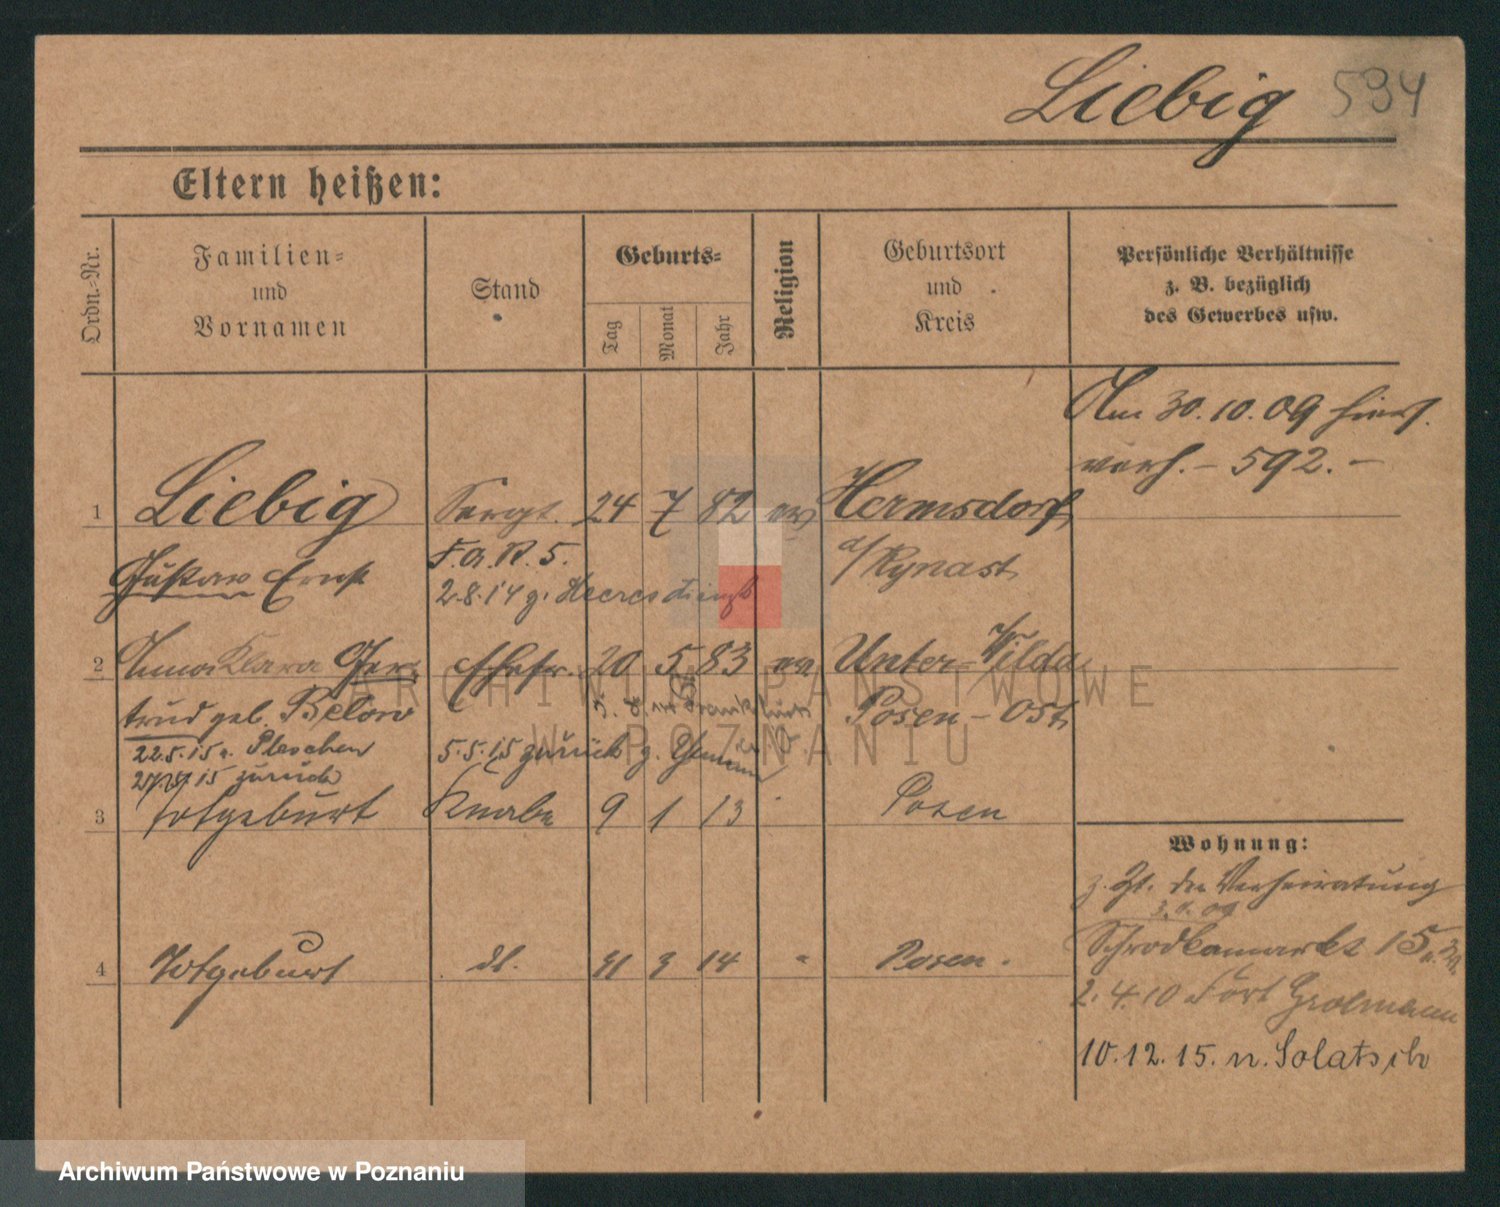 Liebig 594
Eltern heißen:
Ordn.-Nr.
Familien-
und
Vornamen
Stand
Geburts-
Tag
Monat
Jahr
Religion
Geburtsort
und
Kreis
Persönliche Verhältnisse
z. B. bezüglich
des Gewerbes usw.
Am 30.10.09 hier
verh. - 592. -
1 Liebig Sergt. 24 7 82 ev Hermsdorf
Gustav Ernst F.A.R. 5. a/Kynast
2.8.14 z. Heeresdienst
2 Anna Klara Ger= Ehefr. 20 5 83 ev. Unter-Wilda
trud geb. Below Posen-Ost
22.5.15 n. Pleschen 5.5.15 zurück z.
15 zurück
3 Totgeburt Knabe 9 1 13 Posen
Wohnung:
z. Zt. der Verheiratung
Schrodkamarkt 15
4 Totgeburt dl. 3 14 " Posen.
2.4.10 Fort Grolmann
10.12.15. n. Solatsch
ARCHIWUM PAŃSTWOWE
W POZNANIU
Archiwum Państwowe w Poznaniu